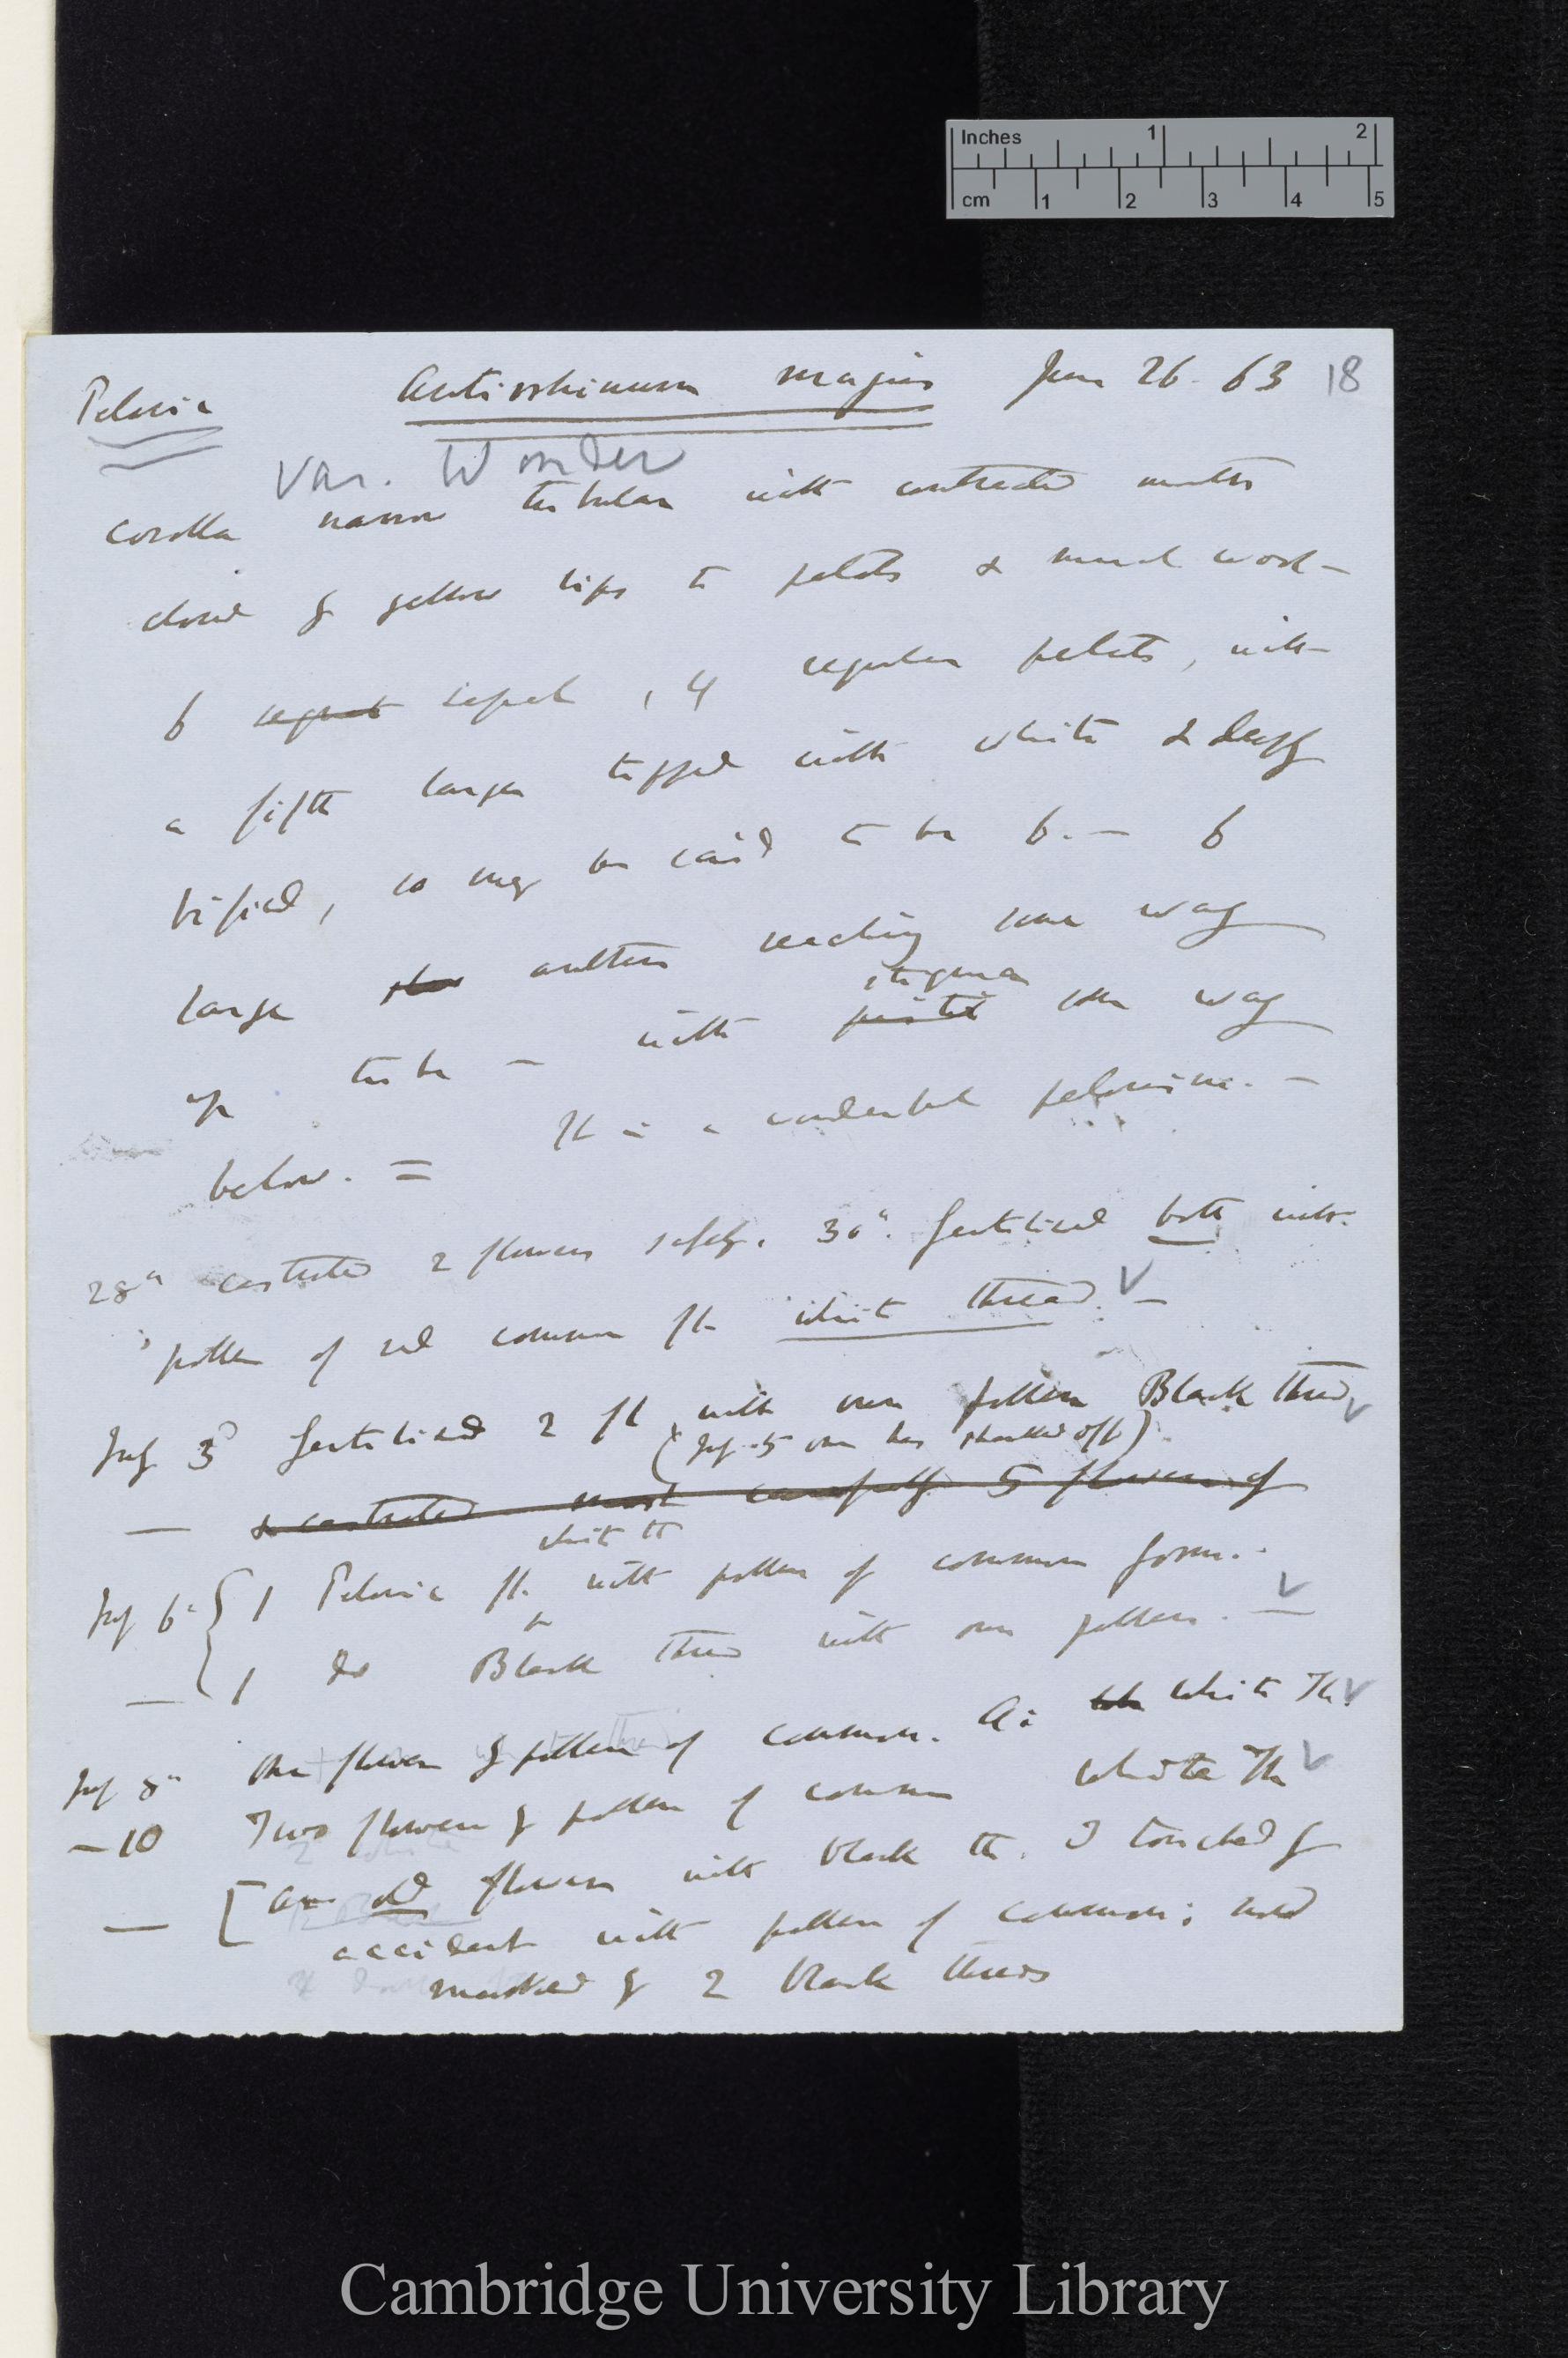 Inches 1 2
cm 1 2 3 4 5
Peloric Antirrhinum majus June 26. 63 18
Var. Wonder
corolla narrow tubular with contracted mouth
closed by yellow lips to petals &
6 sepals, 4 regular petals, with
a fifth larger tipped with white & deeply
bified, so may be said to be 6.— 6
large anthers reaching some way
stigma
up tube — with pistil some way
below. = It is a wonderful pelorism.—
28th castrated 2 flowers safely. 30th. fertilised both with
pollen of red common fl. white thread.—
July 3d fertilised 2 fl with own pollen Black thread
(July 5 one has shanked off)
— & castrated most carefully 5 flowers of
white th
July 6th { 1 Peloric fl. with pollen of common form.
— 1 do Black thread with own pollen.—
July 8th One flower by pollen of common. White Th.
— 10 Two flowers by pollen of common White Th
— [An old flower with black th. I touched by
accident with pollen of common;
marked by 2 black threads
Cambridge University Library